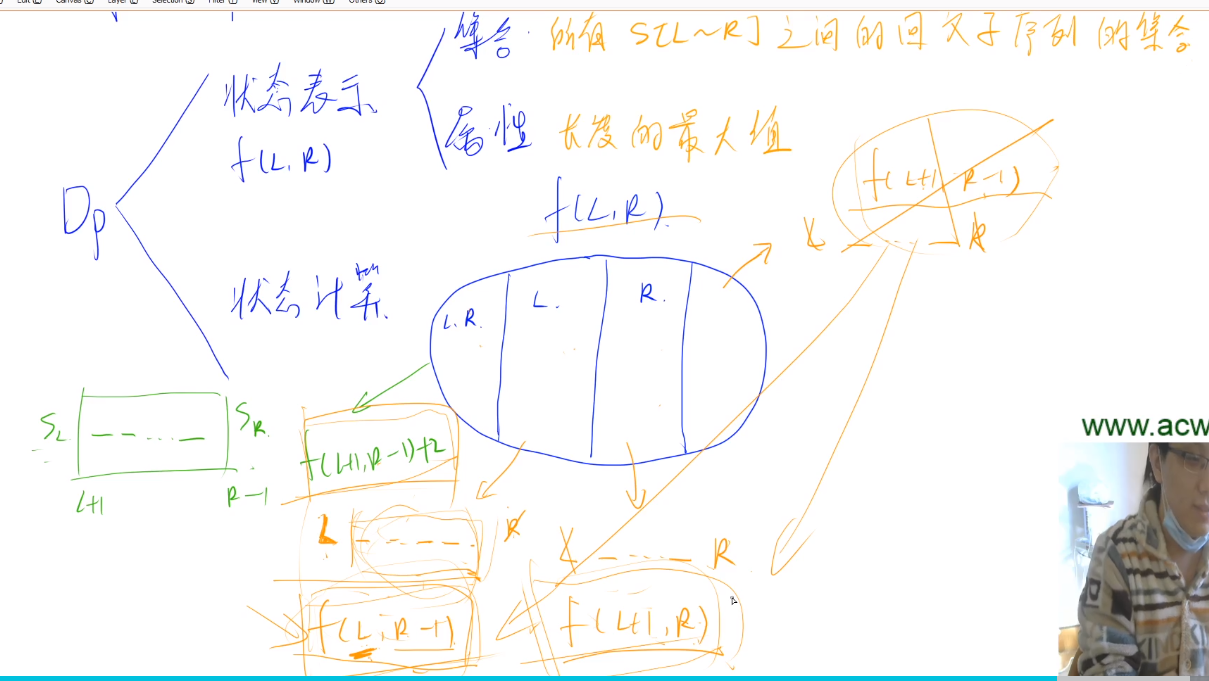 Edit Canvas Layer Selection Filter View Window Others
集合. 所有 S[L~R] 之间的回文子序列的集合
状态表示
f(L, R)
属性 长度的最大值
f(L+1, R-1)
f(L, R)
Dp
L R
状态计算
L.R. L. R.
S_L S_R
f(L+1, R-1)+2
L+1 R-1
L R
L R
f(L, R-1) f(L+1, R)
www.acw